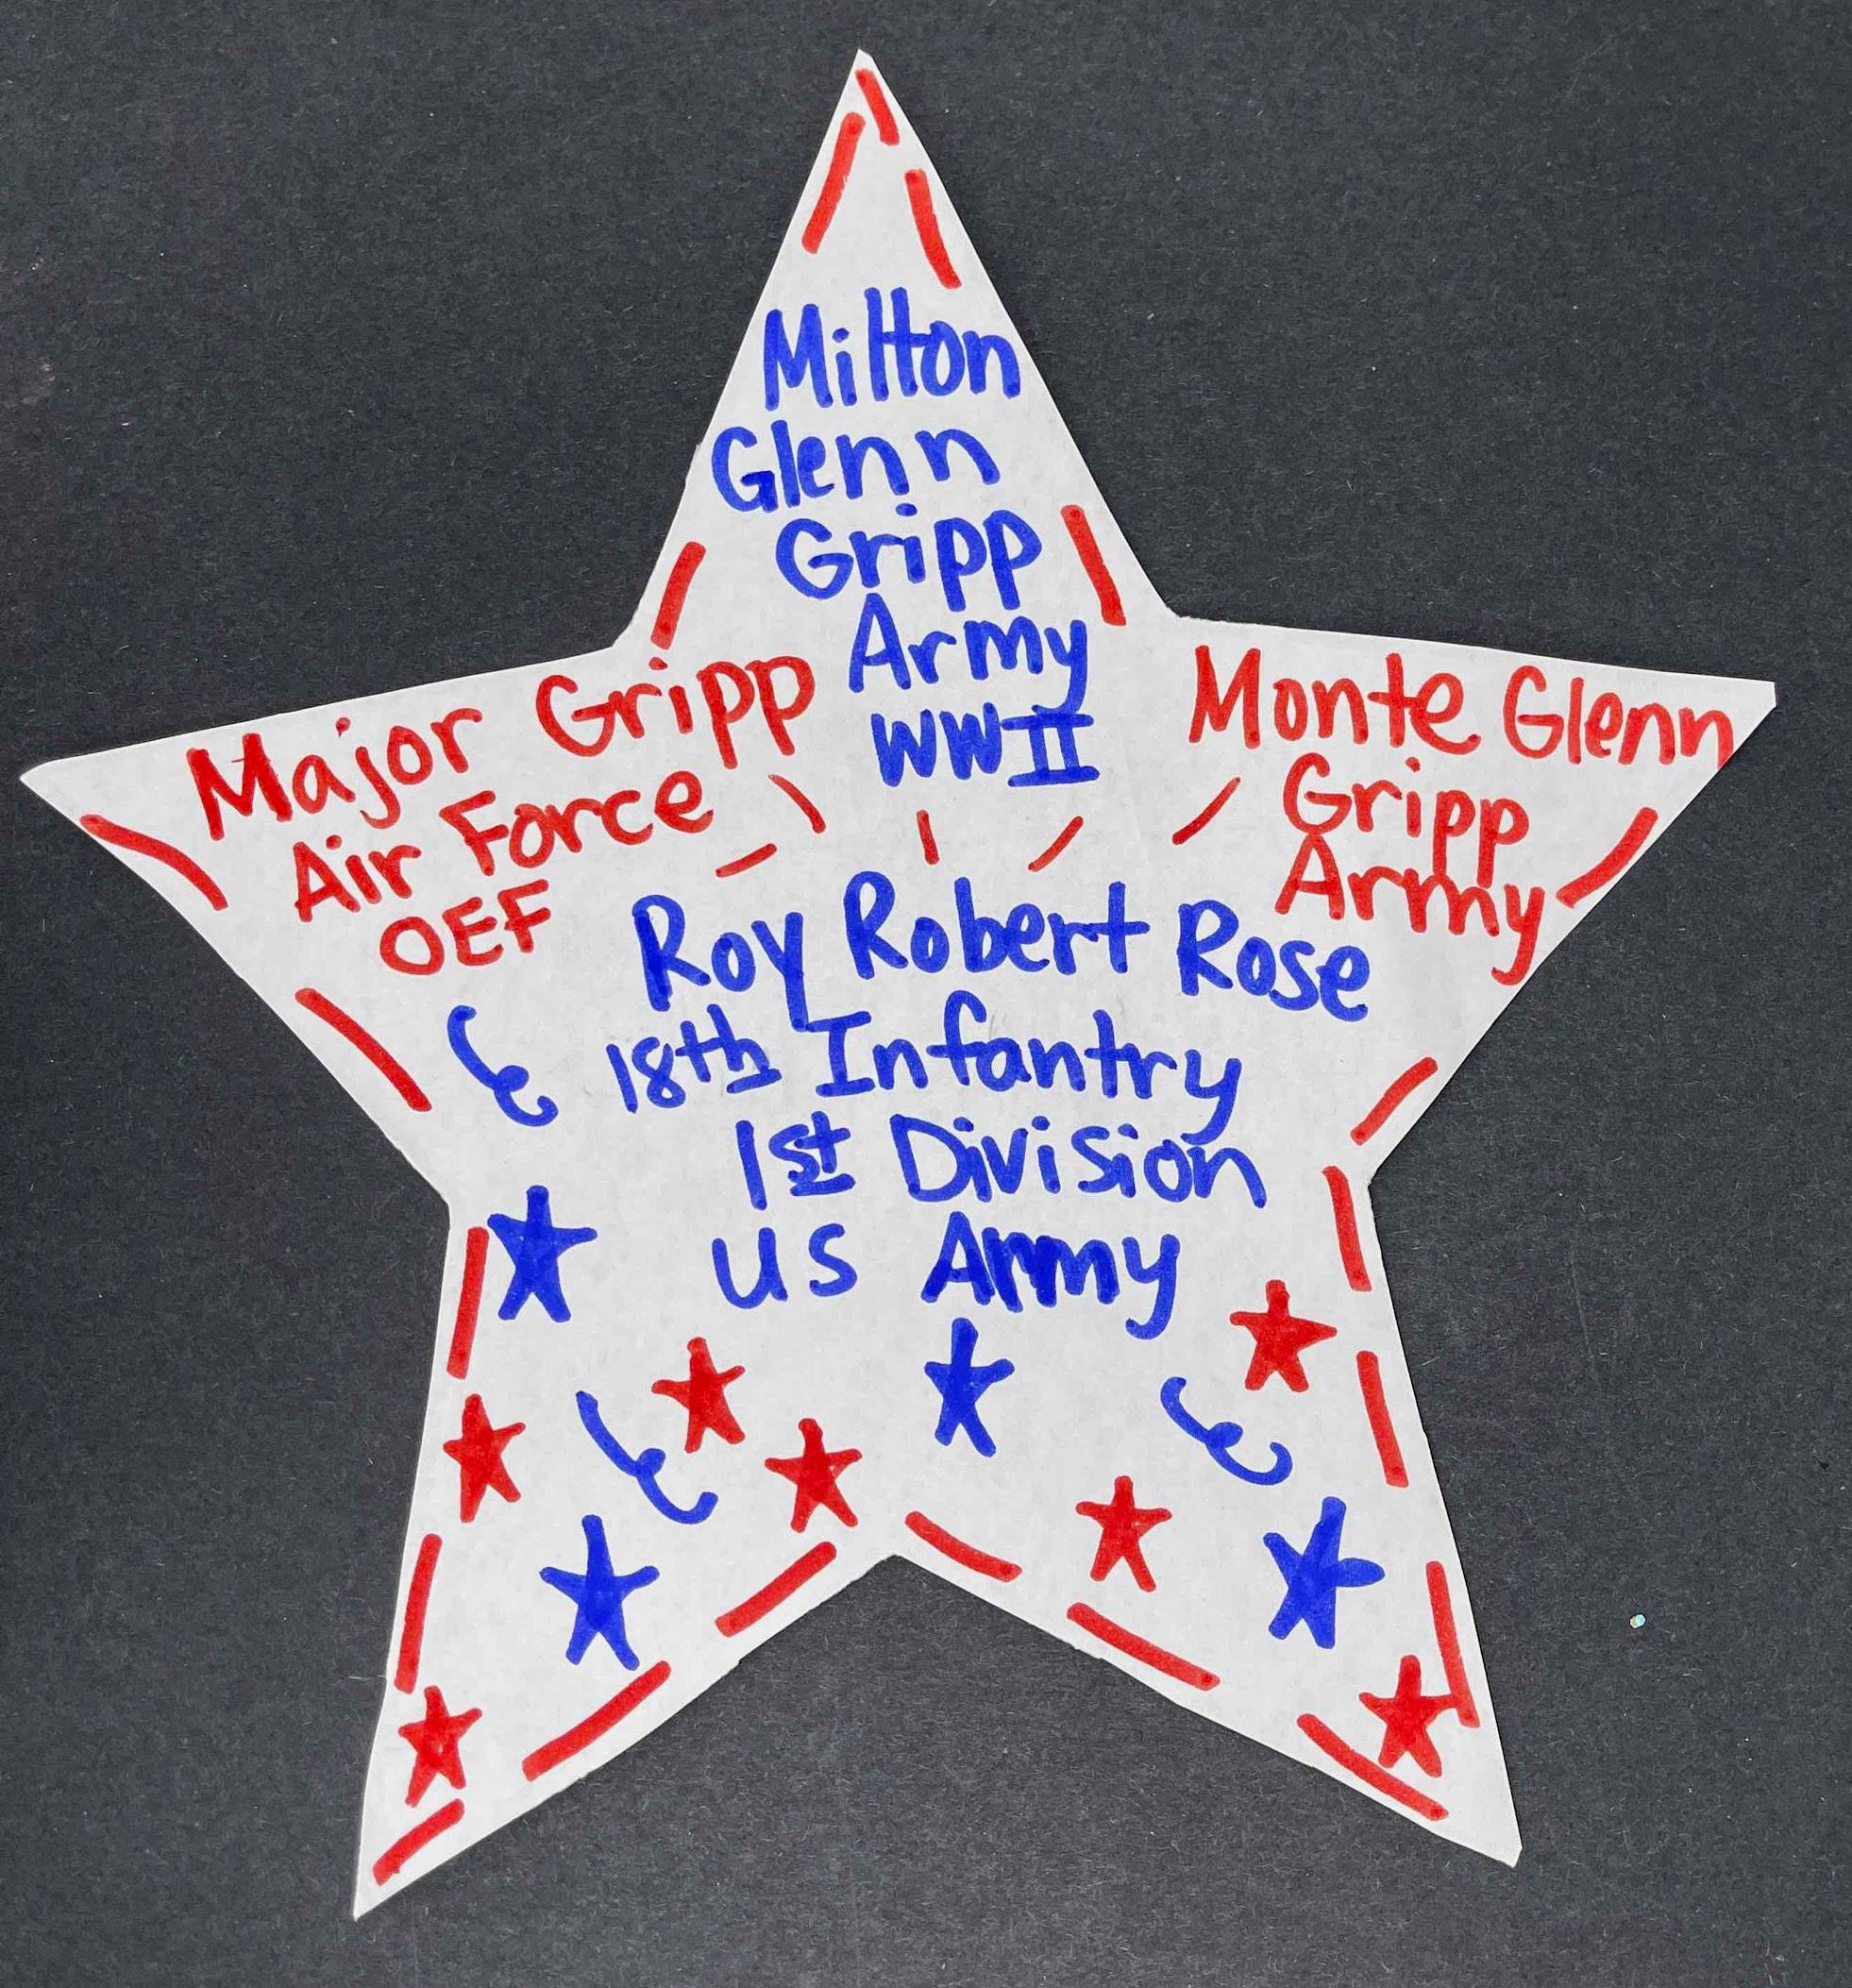 Milton
Glenn
Gripp
Army
WWII
Major Gripp
Air Force
OEF
Monte Glenn
Gripp
Army
Roy Robert Rose
18th Infantry
1st Division
US Army